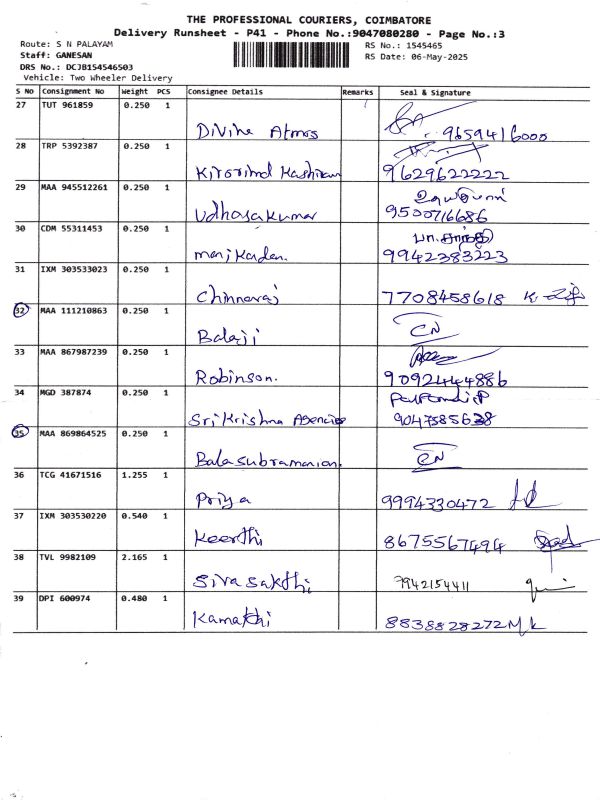 THE PROFESSIONAL COURIERS, COIMBATORE
Delivery Runsheet - P41 - Phone No.:9047080280 - Page No.:3
Route: S N PALAYAM
Staff: GANESAN
DRS No.: DCJB154546503
Vehicle: Two Wheeler Delivery
RS No.: 1545465
RS Date: 06-May-2025
S NO Consignment No Weight PCS Consignee Details Remarks Seal & Signature
27 TUT 961859 0.250 1 Divine Atmos 9659416000
28 TRP 5392387 0.250 1 9629622222
29 MAA 945512261 0.250 1 Udhayakumar உதயகுமார் 9500716686
30 CDM 55311453 0.250 1 manikandan. 9942383223
31 IXM 303533023 0.250 1 Chinnaraj 7708458618
32 MAA 111210863 0.250 1 Balaji CN
33 MAA 867987239 0.250 1 Robinson. 9092444886
34 MGD 387874 0.250 1 Sri Krishna Agencies 9047585638
35 MAA 869864525 0.250 1 Balasubramanian. CN
36 TCG 41671516 1.255 1 Priya 9994330472
37 IXM 303530220 0.540 1 Keerthi 8675567494
38 TVL 9982109 2.165 1 Siva sakthi 7942154411
39 DPI 600974 0.480 1 Kamakhi 8838828272 M.k